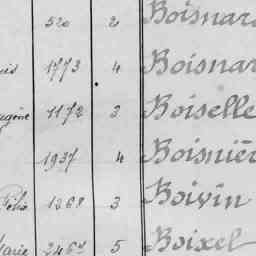 520 2 Boisnard
1773 4 Boisnar
1172 3 Boiselle
1937 4 Boisnièr
Félix 1268 3 Boivin
Marie 2467 5 Boixel